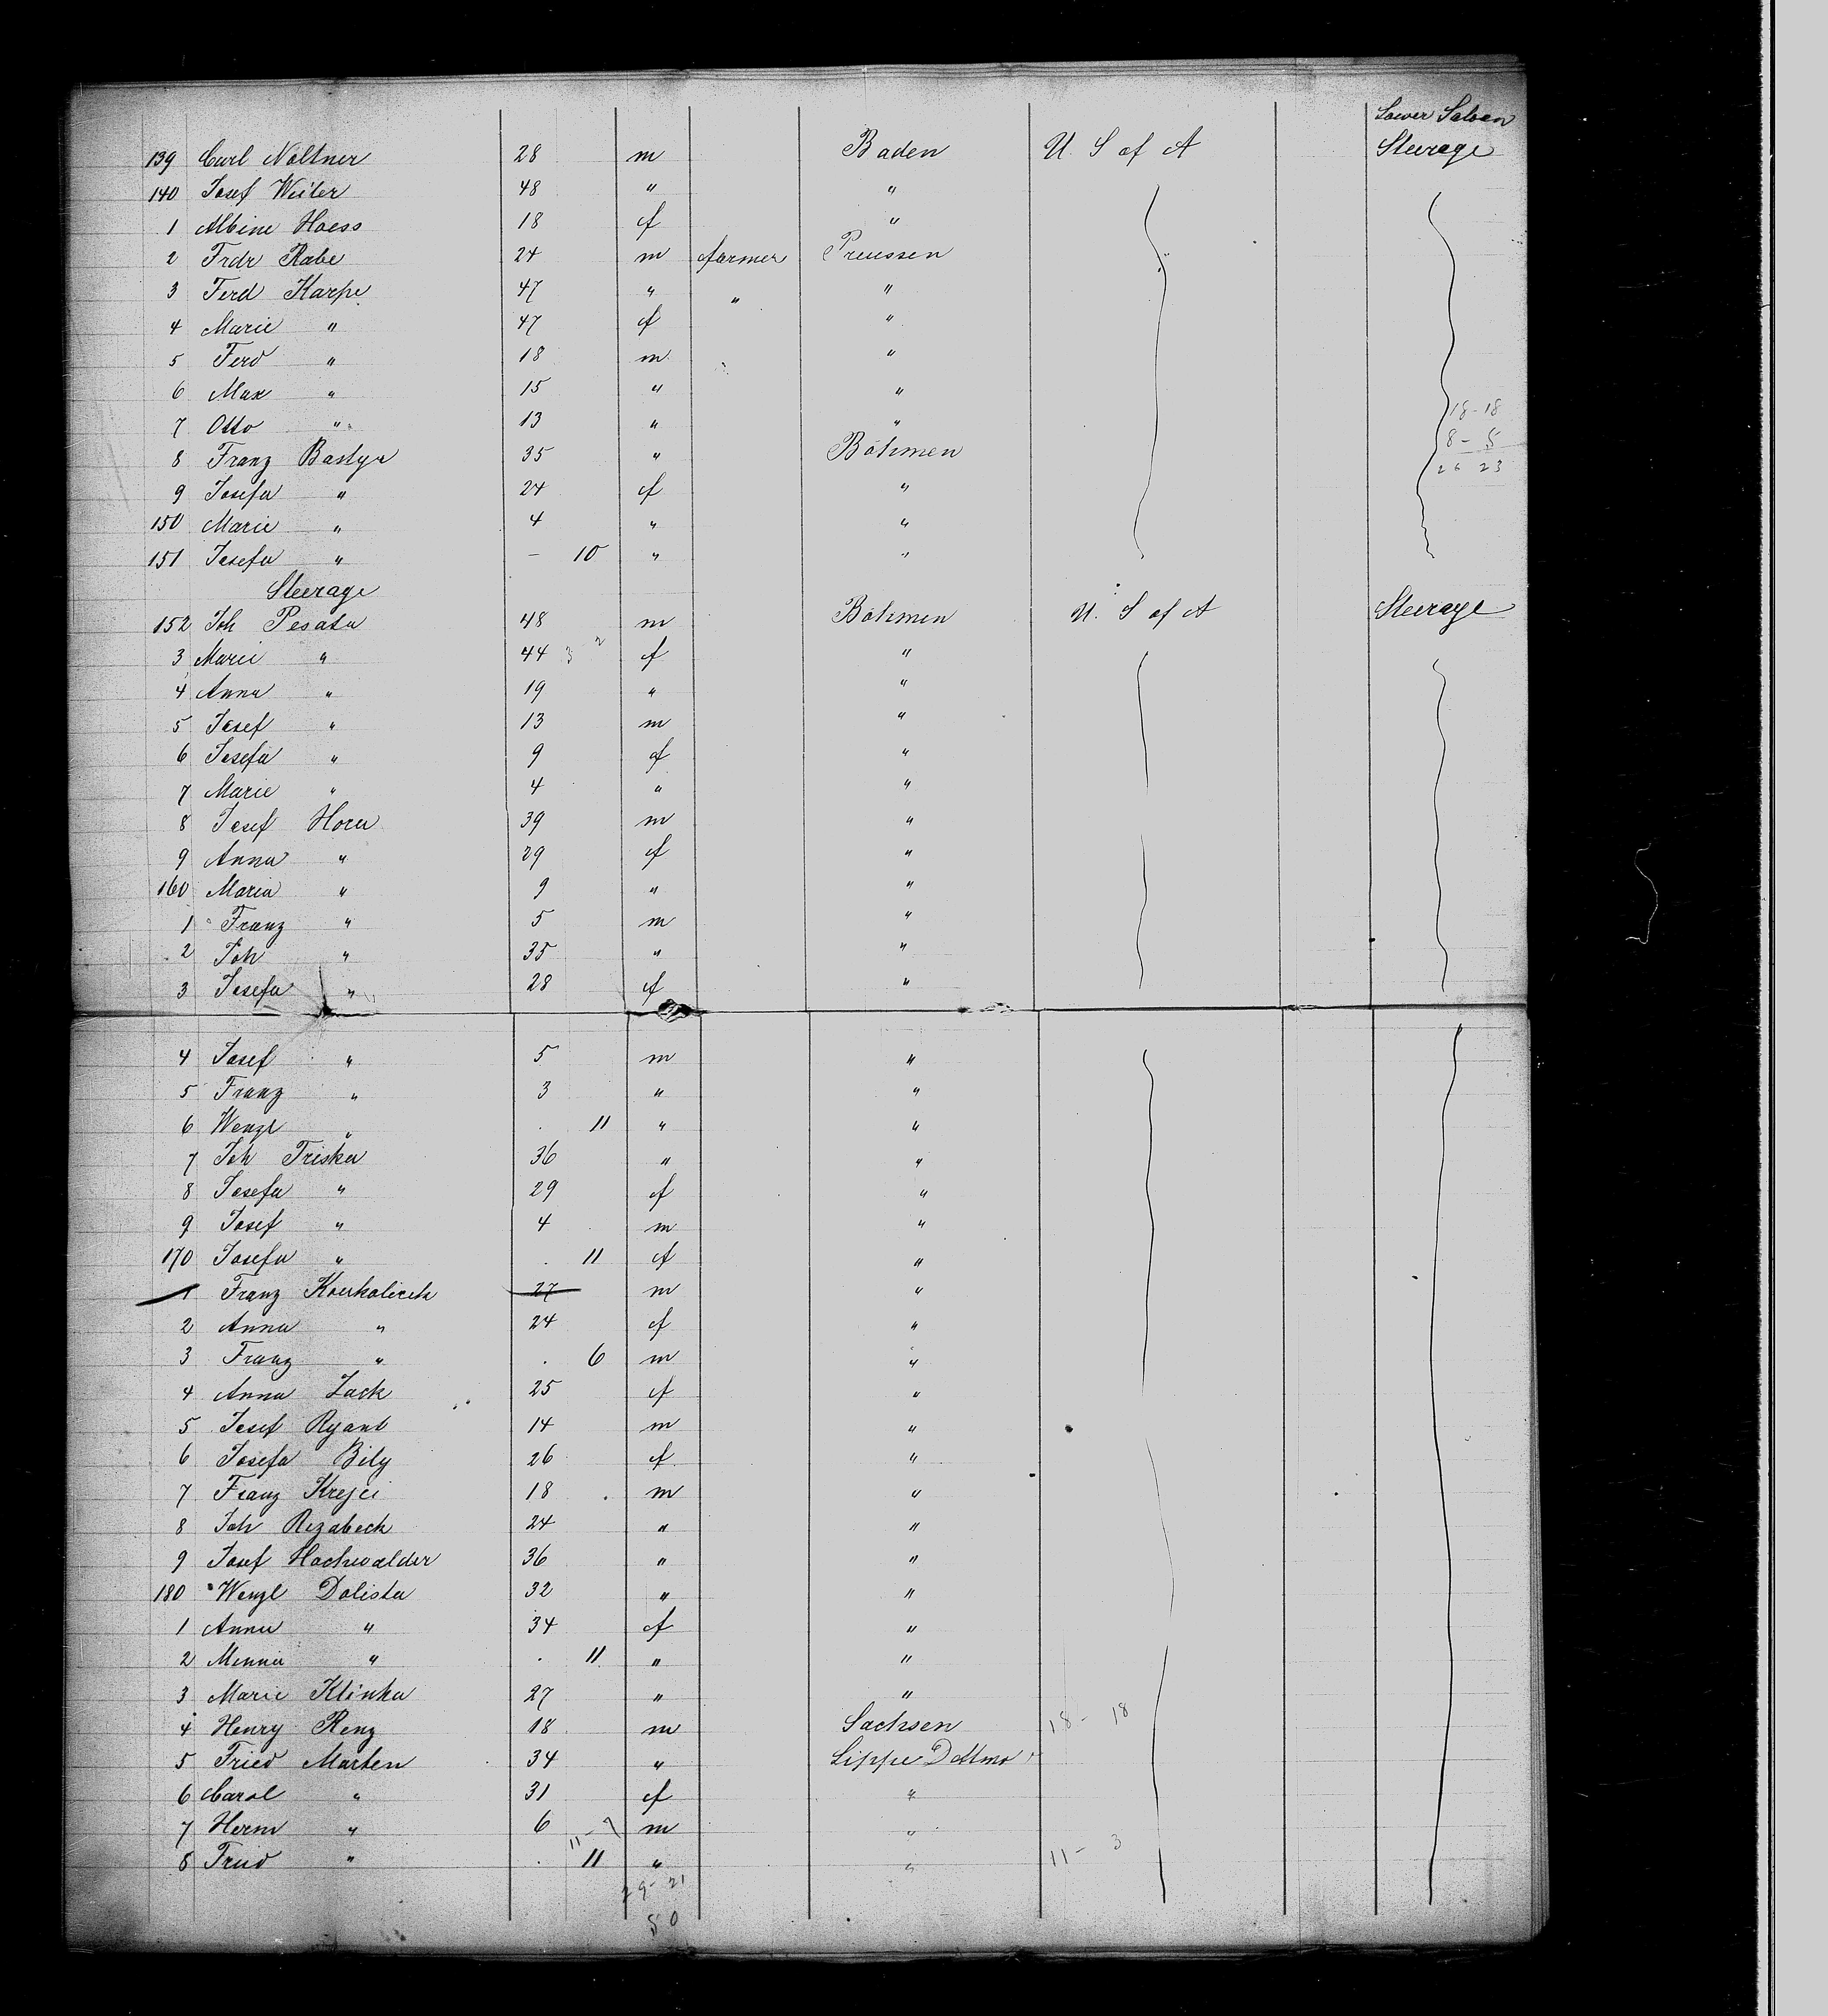 Lower Saloon
139 Carl Noltner 28 m Baden U. S of A Steerage
140 Josef Weiler 48 " "
1 Albine Hoess 18 f "
2 Frdr Rabe 24 m farmer Preussen
3 Ferd Karpe 47 " " "
4 Marie " 47 f "
5 Ferd " 18 m "
6 Max " 15 " "
7 Otto " 13 " " 18-18
8 Franz Bastyr 35 " Böhmen 8-5
9 Josefa " 24 f " 26 23
150 Marie " 4 " "
151 Josefa " - 10 " "
Steerage
152 Joh Pesata 48 m Böhmen U. S of A Steerage
3 Marie " 44 3 2 f "
4 Anna " 19 " "
5 Josef " 13 m "
6 Josefa " 9 f "
7 Marie " 4 " "
8 Josef Hora 39 m "
9 Anna " 29 f "
160 Maria " 9 " "
1 Franz " 5 m "
2 Joh " 35 " "
3 Josefa " 28 f "
4 Josef " 5 m "
5 Franz " 3 " "
6 Wenzl " . 11 " "
7 Joh Triska 36 " "
8 Josefa " 29 f "
9 Josef " 4 m "
170 Josefa " . 11 f "
1 Franz Koukolicek 27 m "
2 Anna " 24 f "
3 Franz " . 6 m "
4 Anna Zack 25 f "
5 Josef Ryant 14 m "
6 Josefa Bily 26 f "
7 Franz Krejci 18 m "
8 Joh Rezabeck 24 " "
9 Josef Hochwalder 36 " "
180 Wenzl Dolista 32 " "
1 Anna " 34 f "
2 Minna " . 11 " "
3 Marie Klinka 27 " "
4 Henry Renz 18 m Sachsen 18-18
5 Fried Marten 34 " Lippe Dettmo
6 Carol " 31 f "
7 Herm " 6 m "
11-7
8 Fried " . 11 " " 11-3
29-21
50